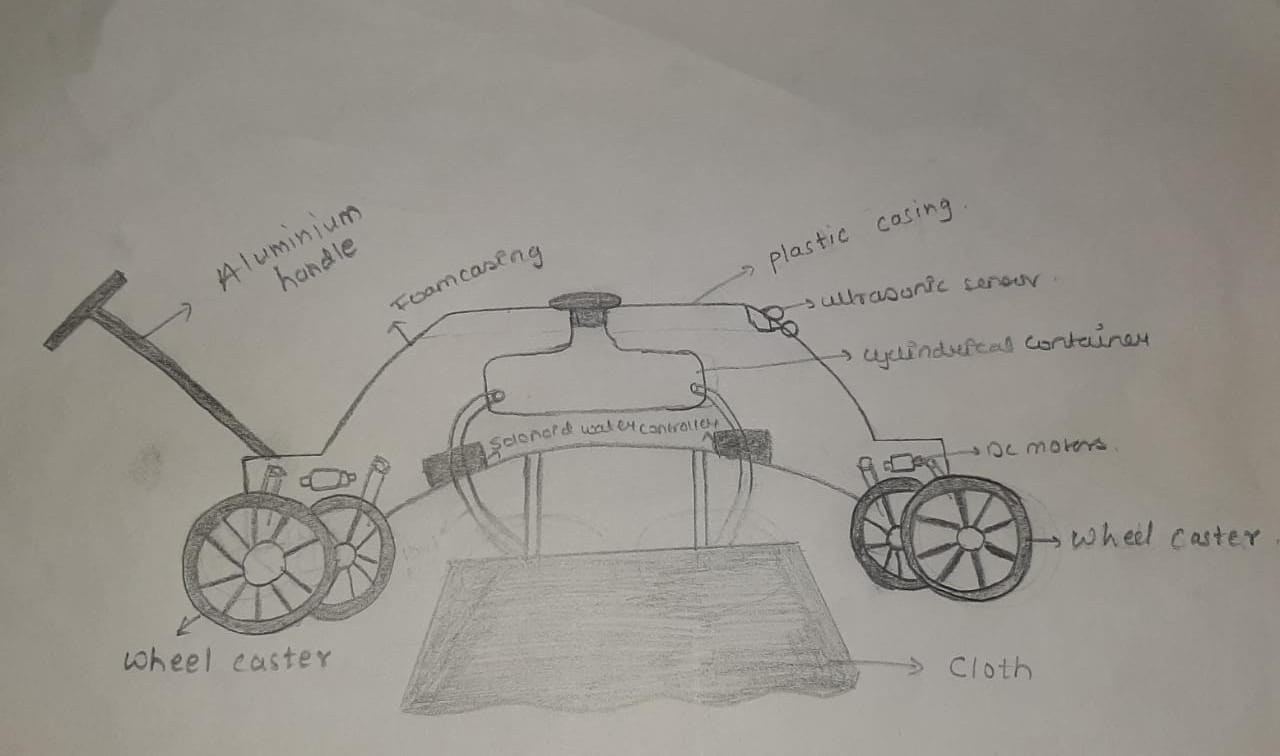 Aluminium
handle
Foamcasing
plastic casing.
ultrasonic sensor.
cylindrical container
Solonoid water controller
DC motors.
wheel caster
wheel caster
Cloth